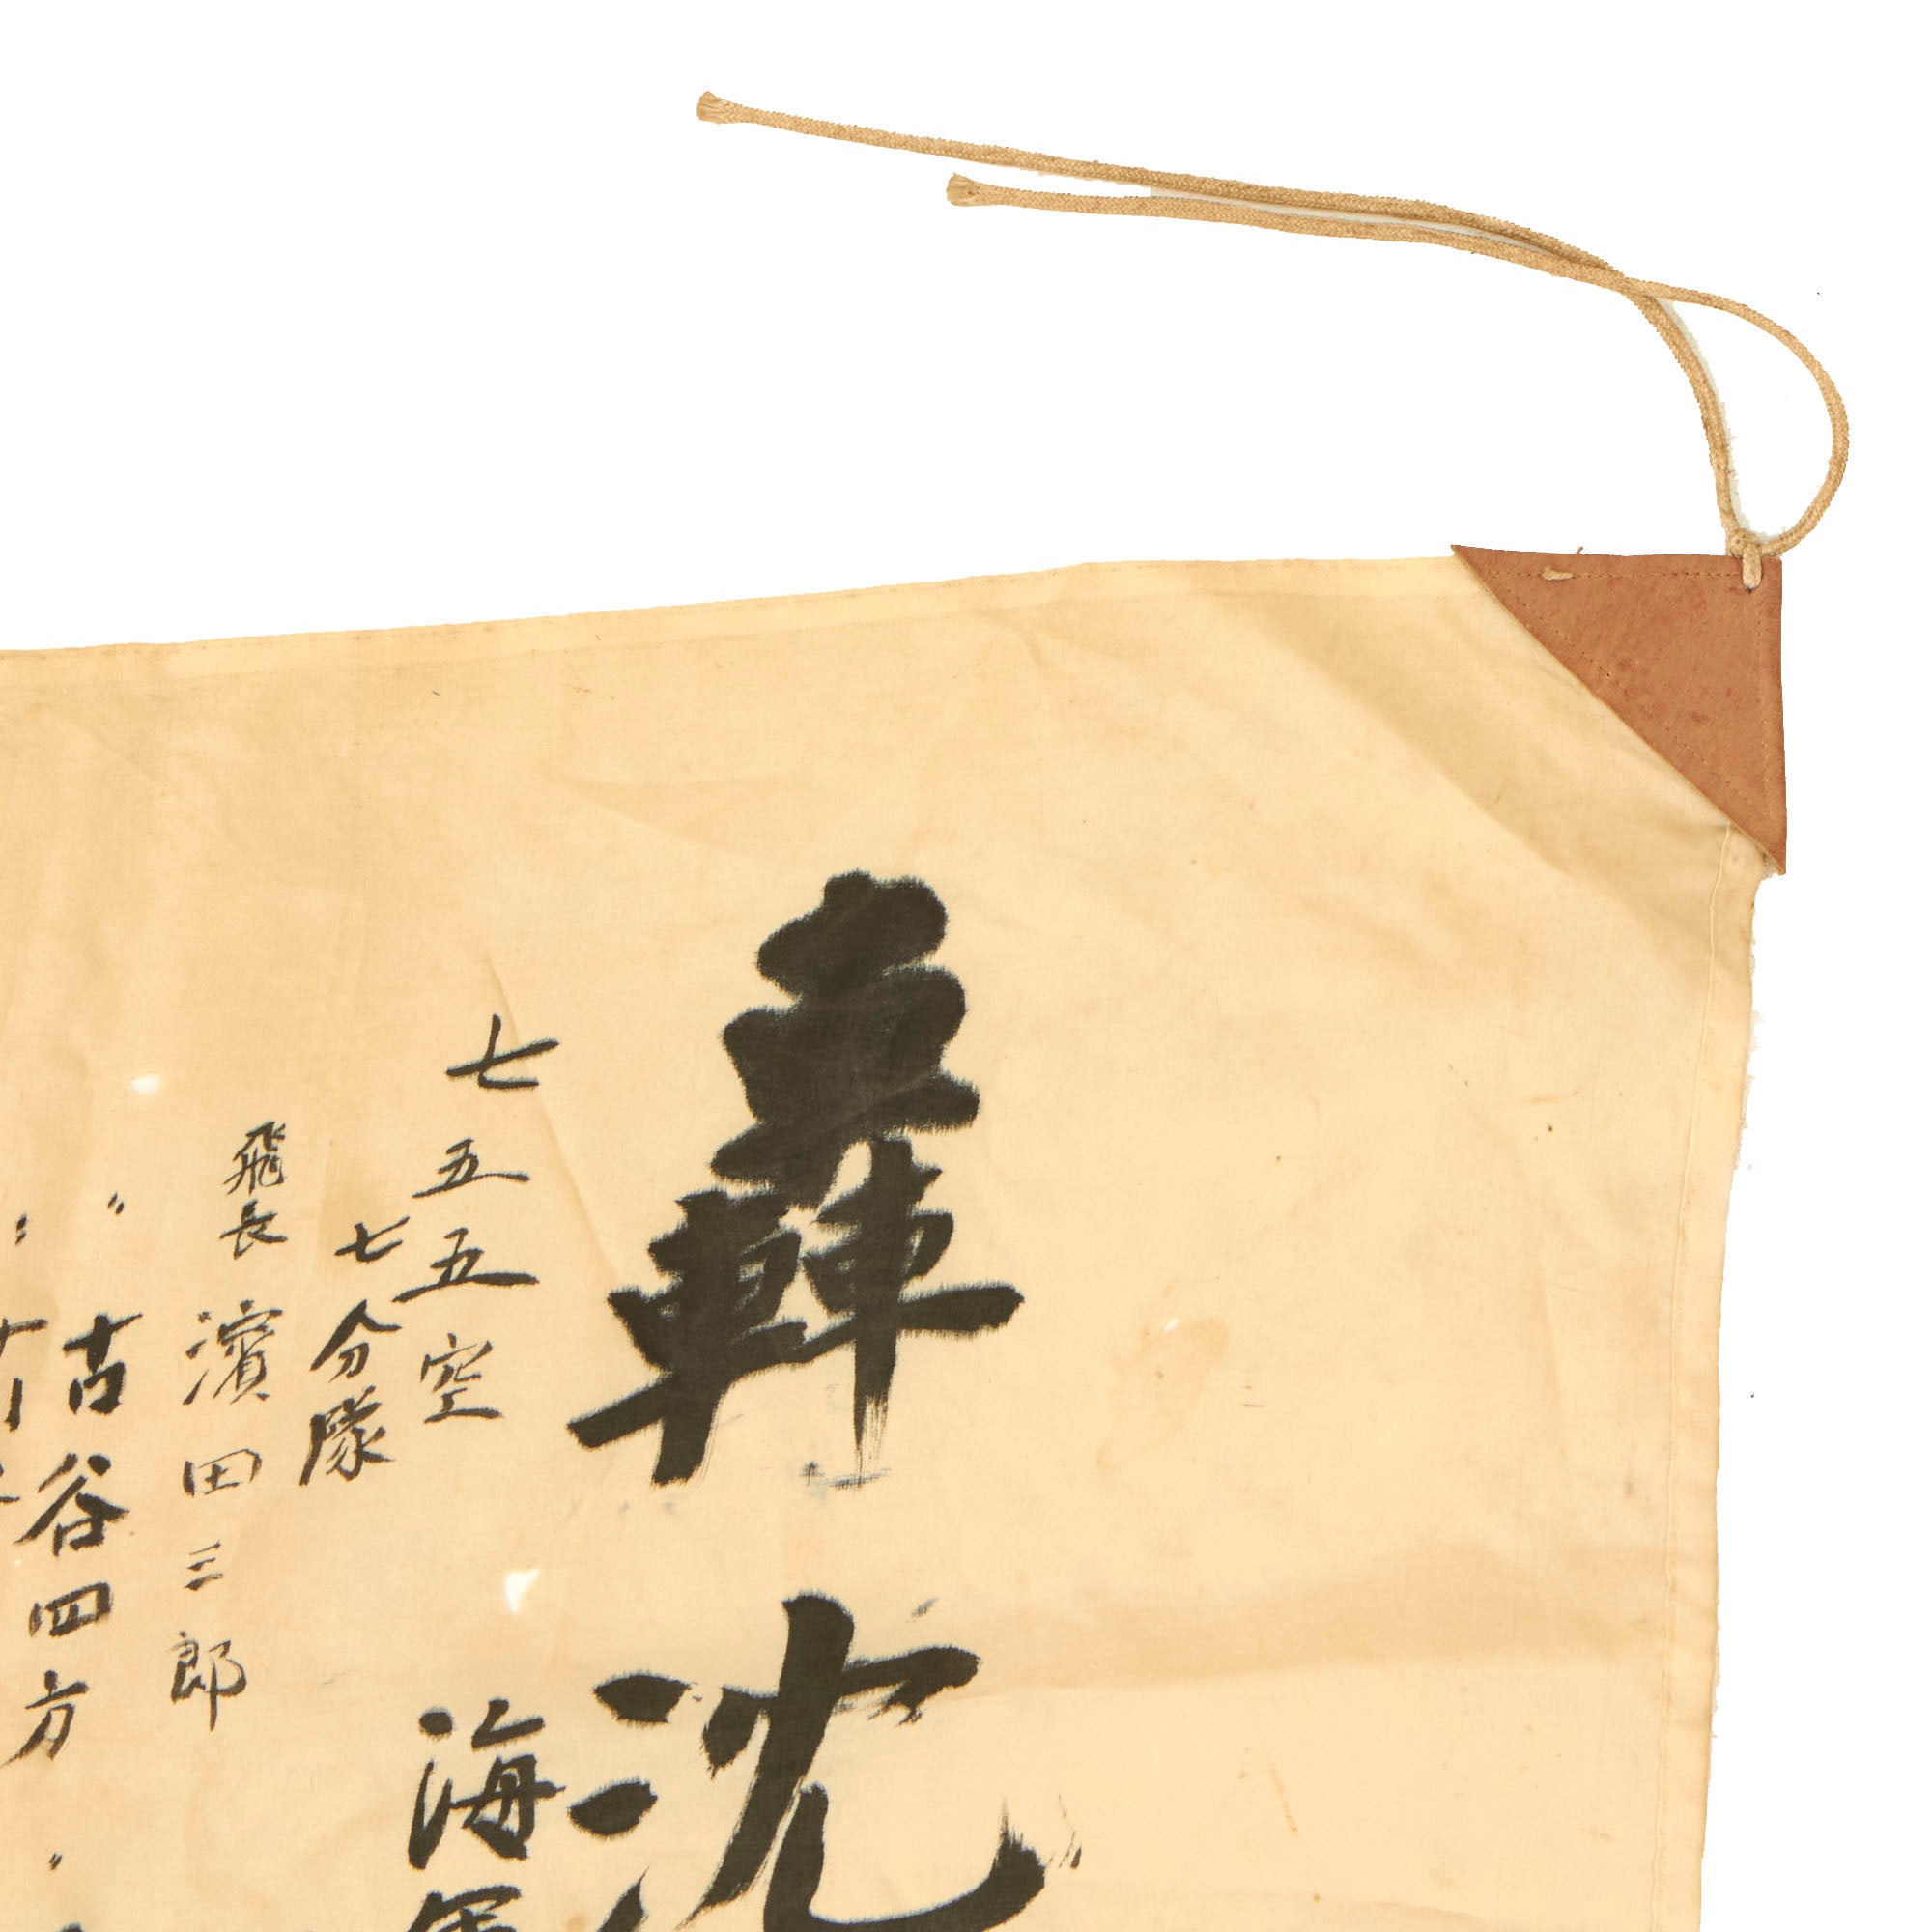 轟沈
七五五空
海軍
七分隊
飛長 濱田三郎
〃 古谷四方
〃
〃